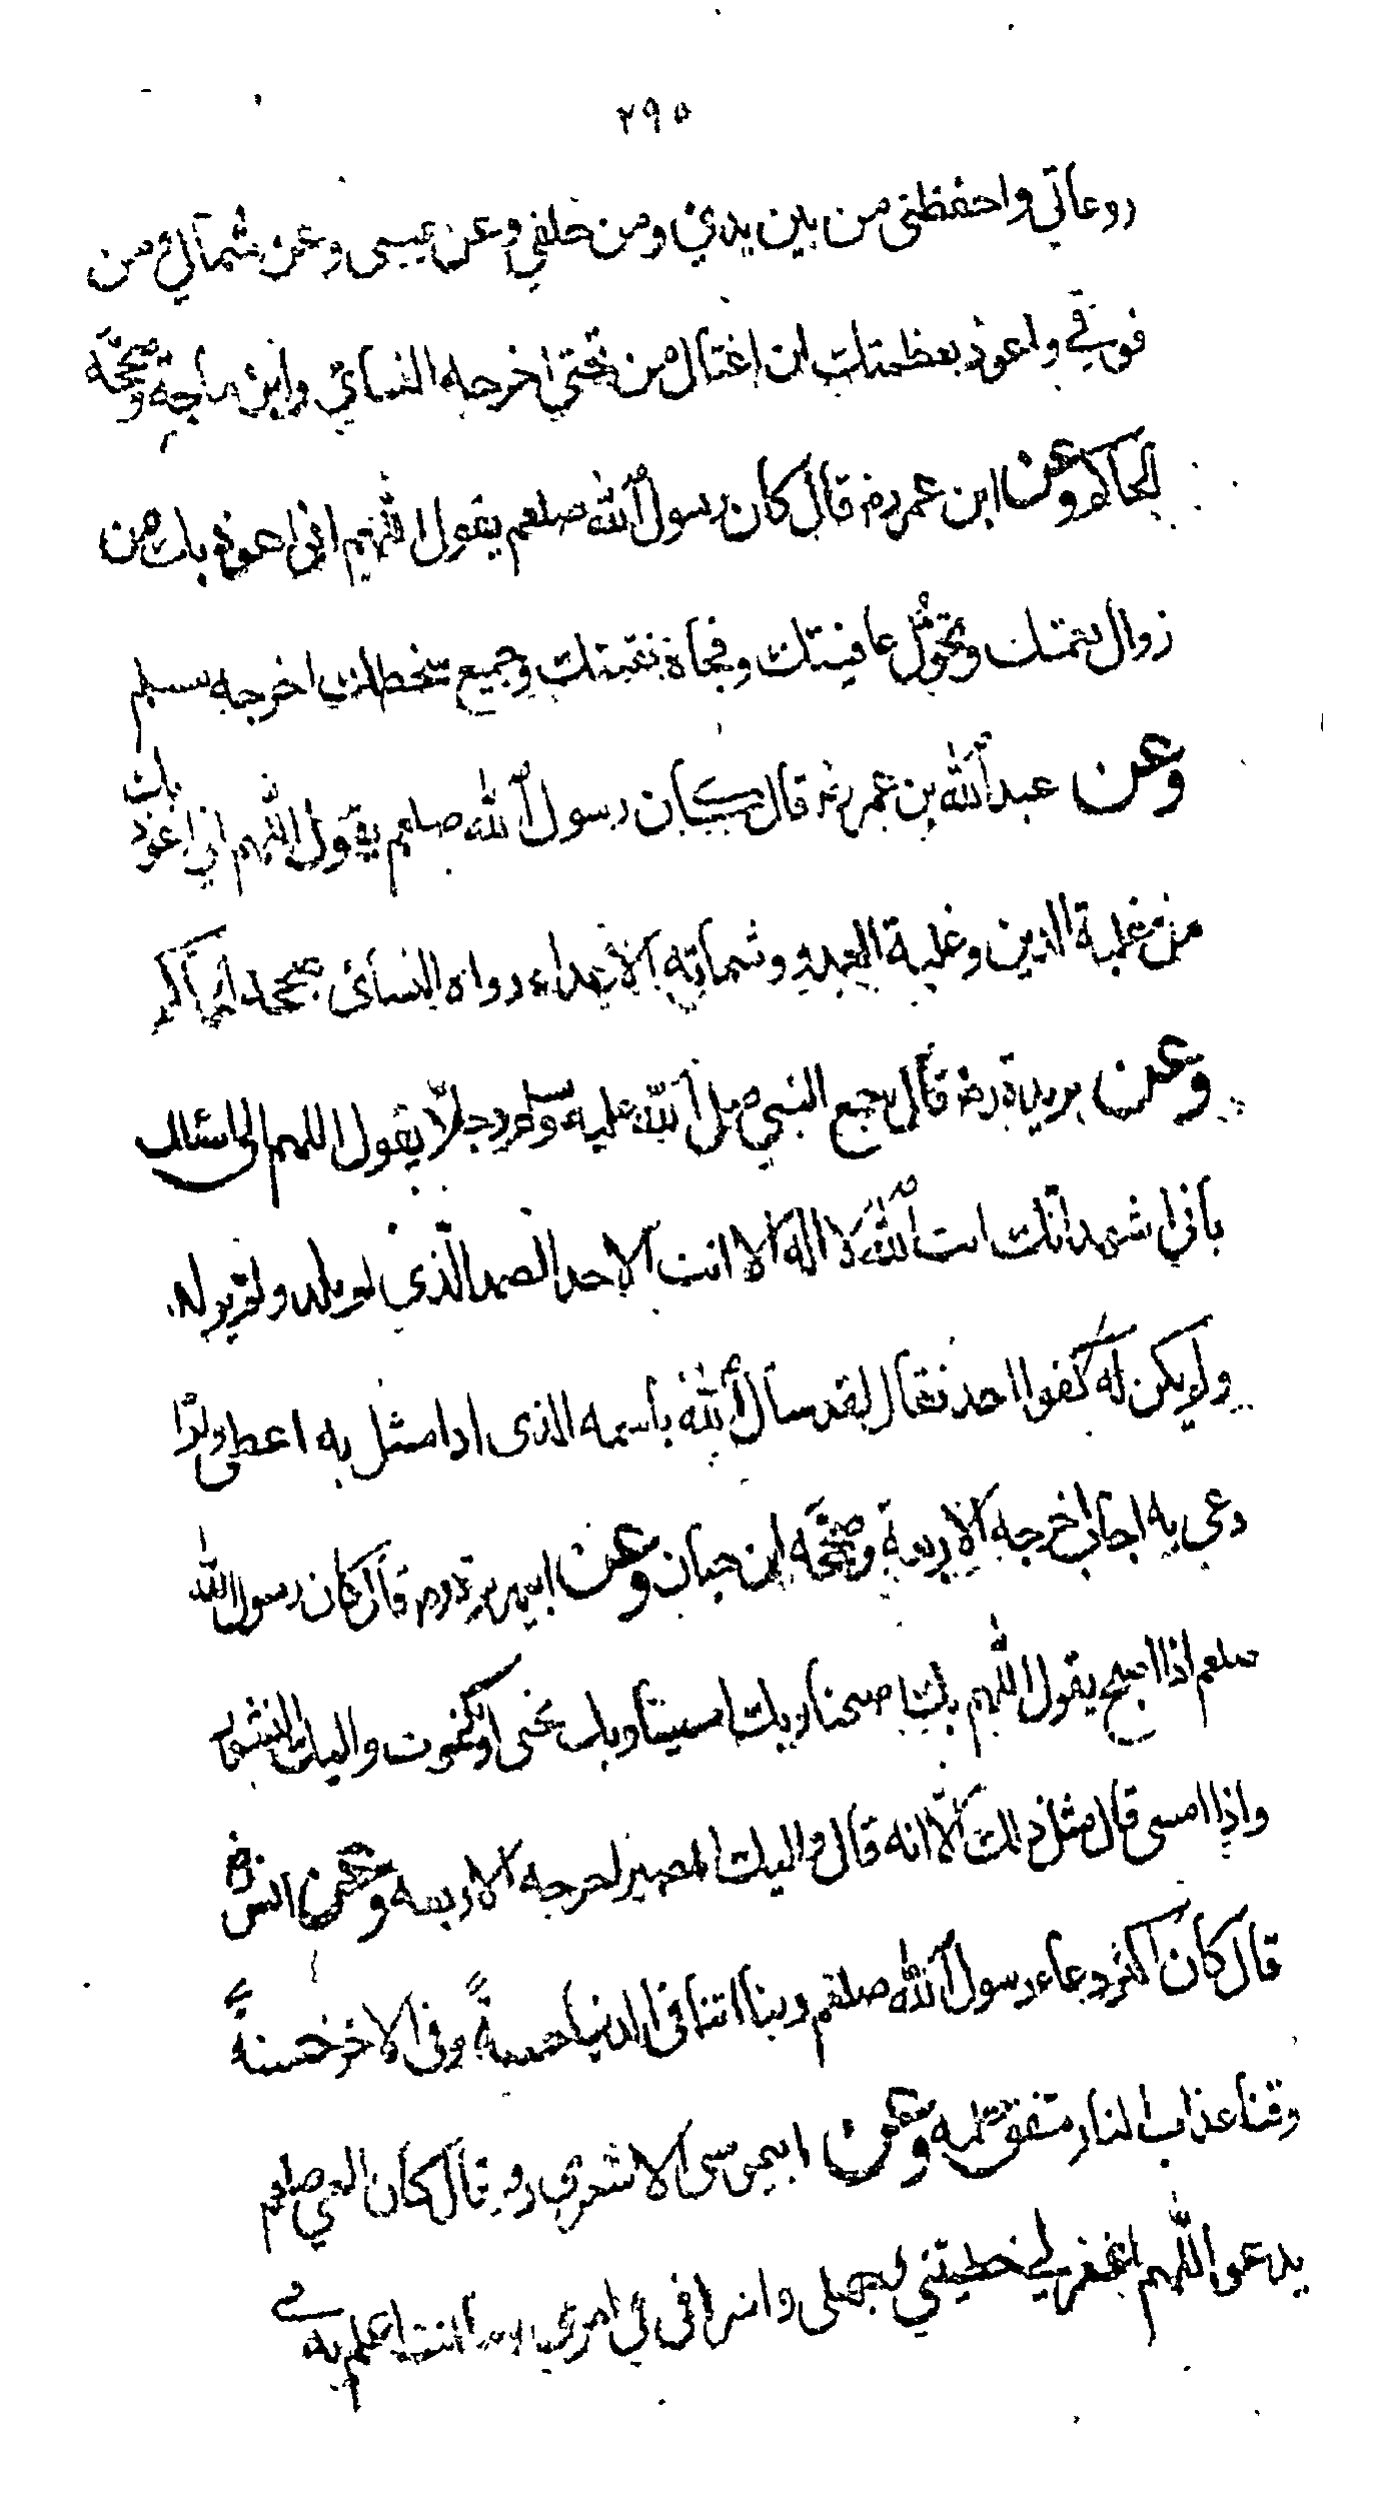 ٢٩٥
روعاتي واحفظني من بين يدي ومن خلفي وعن يميني وعن شمالي ومن
فوقي واعوذ بعظمتك ان اغتال من تحتي اخرجه النسائي وابن ماجة وصححه
الحاكم وعن ابن عمر رض قال كان رسول الله صلعم يقول اللهم اني اعوذ بك من
زوال نعمتك وتحول عافيتك وفجاة نقمتك وجميع سخطك اخرجه مسلم
وعن عبد الله بن عمر رض قال كان رسول الله صلعم يقول اللهم اني اعوذ بك
من غلبة الدين وغلبة العدو وشماتة الاعداء رواه النسائي صححه الحاكم
وعن بريدة رض قال سمع النبي صلى الله عليه وسلم رجلاً يقول اللهم اني اسئلك
باني اشهد انك انت الله لا اله الا انت الاحد الصمد الذي لم يلد ولم يولد
ولم يكن له كفوا احد فقال لقد سال الله باسمه الذي اذا سئل به اعطى واذا
دعي به اجاب اخرجه الاربعة وصححه ابن حبان وعن ابيهريرة رض قال كان رسول الله
صلعم اذا اصبح يقول اللهم بك اصبحنا وبك امسينا وبك نحيى وبك نموت واليك النشور
واذا امسى قال مثل ذلك الا انه قال واليك المصير اخرجه الاربعه وعن انس رض
قال كان اكثر دعاء رسول الله صلعم ربنا اتنا في الدنيا حسنةً وفي الاخرة حسنةً
وقنا عذاب النار متفق عليه وعن ابيموسى الاشعري رض قال كان النبي صلعم
يدعو اللهم اغفر لي خطيئتي وجهلي واسرافي في امري وما انت اعلم به